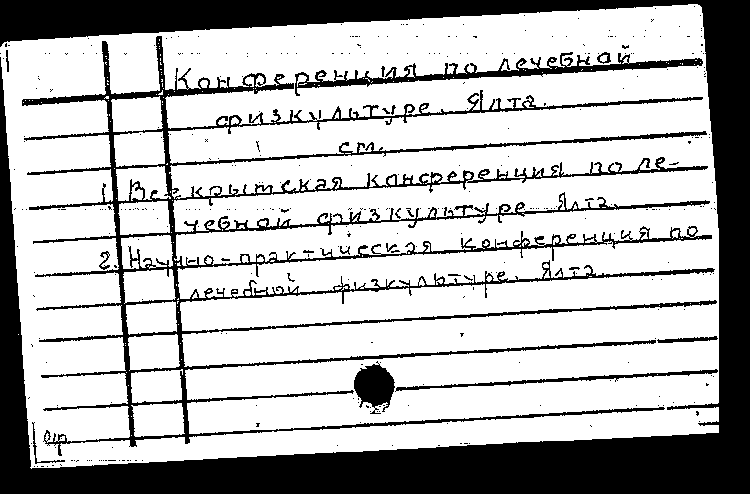 Конференция по лечебной
физкультуре. Ялта.
см.
1. Всекрымская конференция по ле-
чебной физкультуре Ялта.
2. Научно-практическая конференция по
лечебной физкультуре. Ялта.